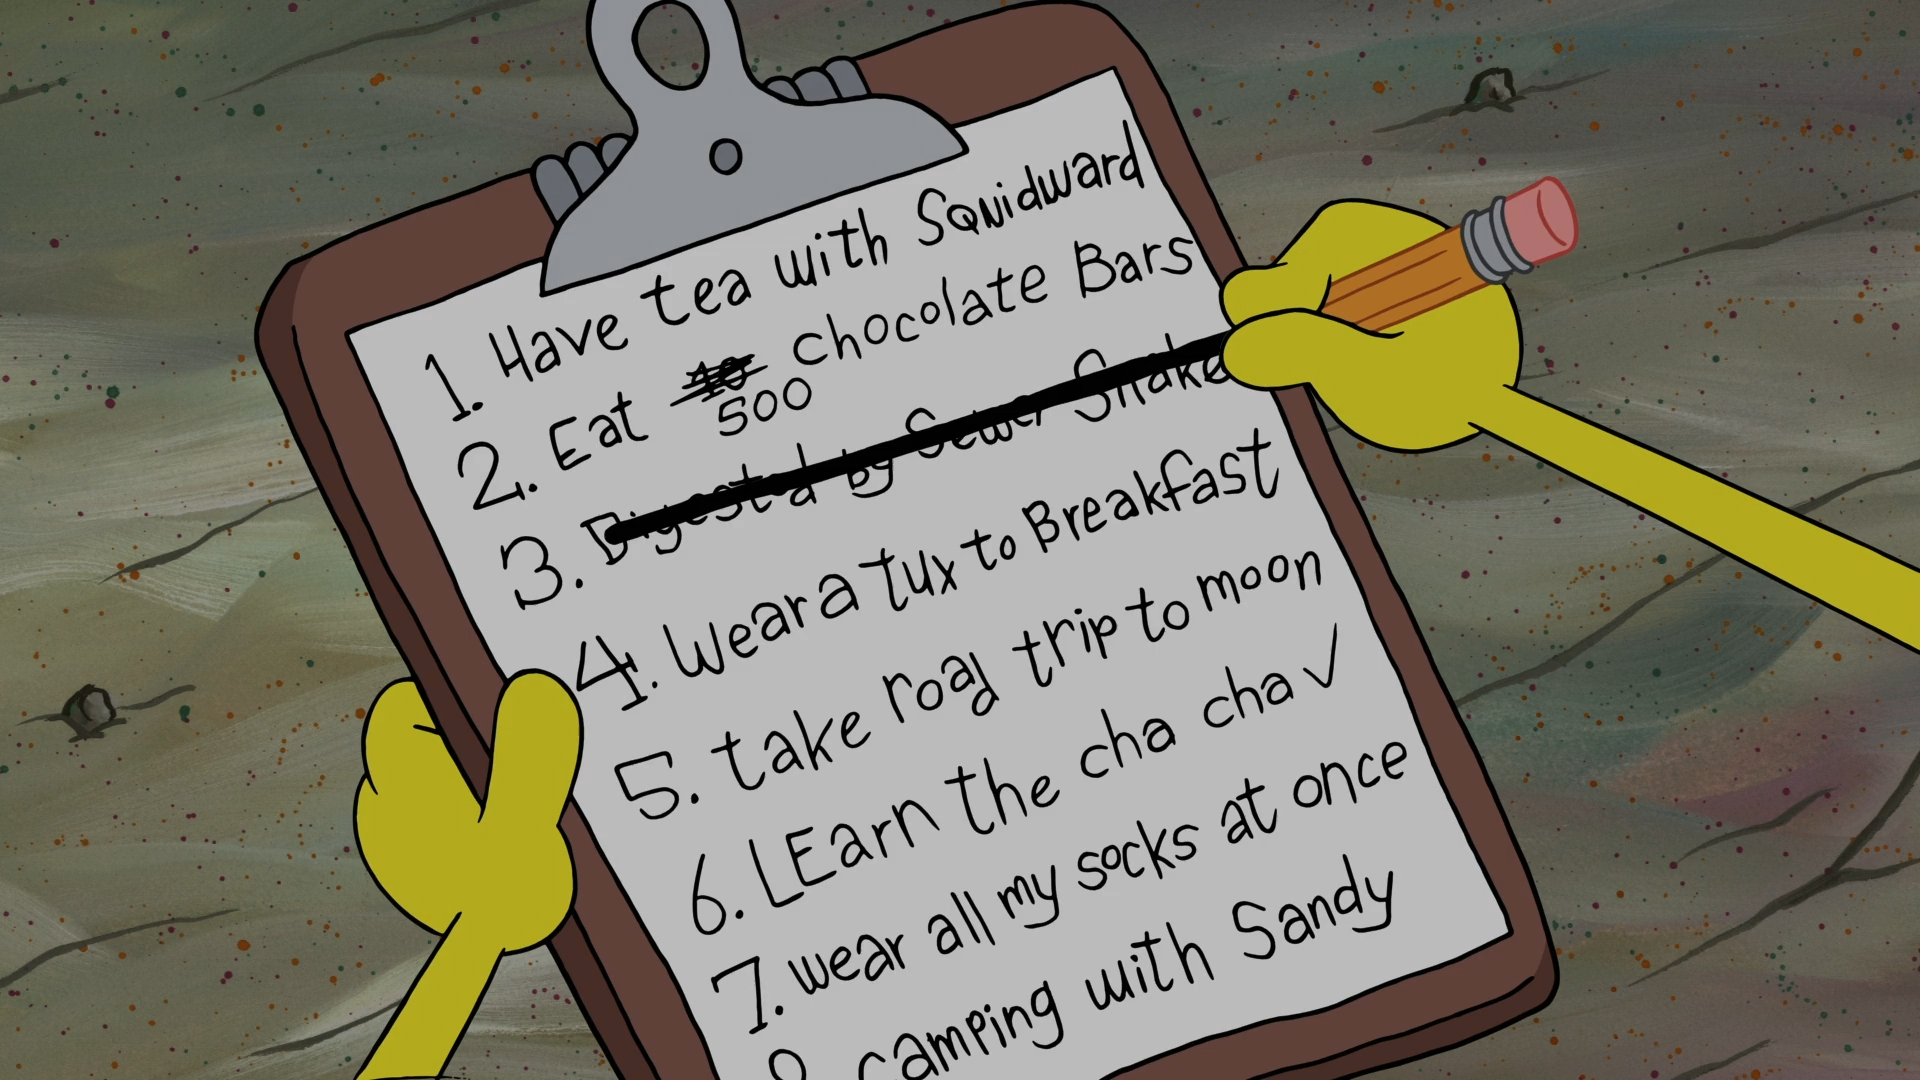 1. Have tea with Squidward
2. Eat 10 chocolate Bars
500
3. Digested by Sewer Snake
4. Wear a tux to Breakfast
5. take road trip to moon
6. LEarn the cha cha ✓
7. wear all my socks at once
8. camping with Sandy